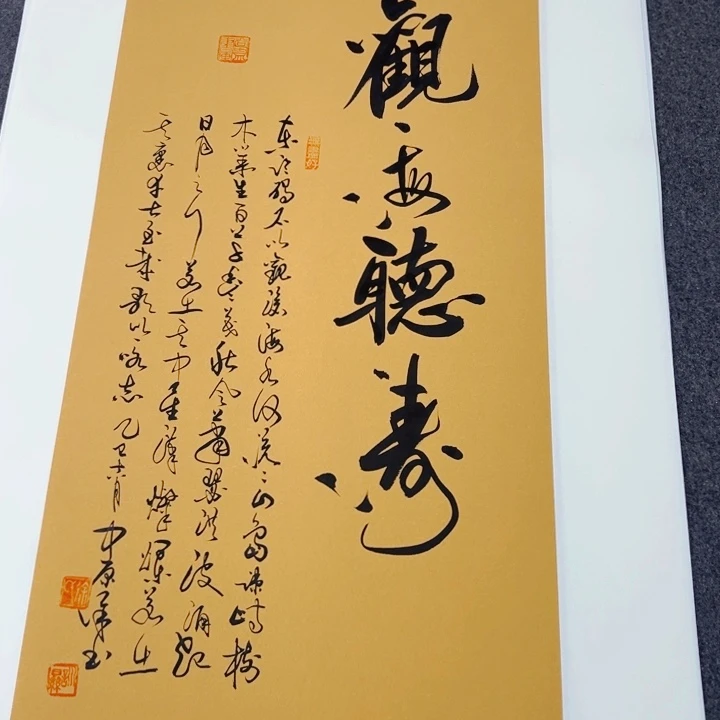 觀海聽濤
東臨碣石以觀滄海水何澹〻山島竦峙樹
木叢生百草豐茂秋風蕭瑟洪波涌起
日月之行若出其中星漢燦爛若出
其裏幸甚至哉歌以咏志乙巳六月中原書